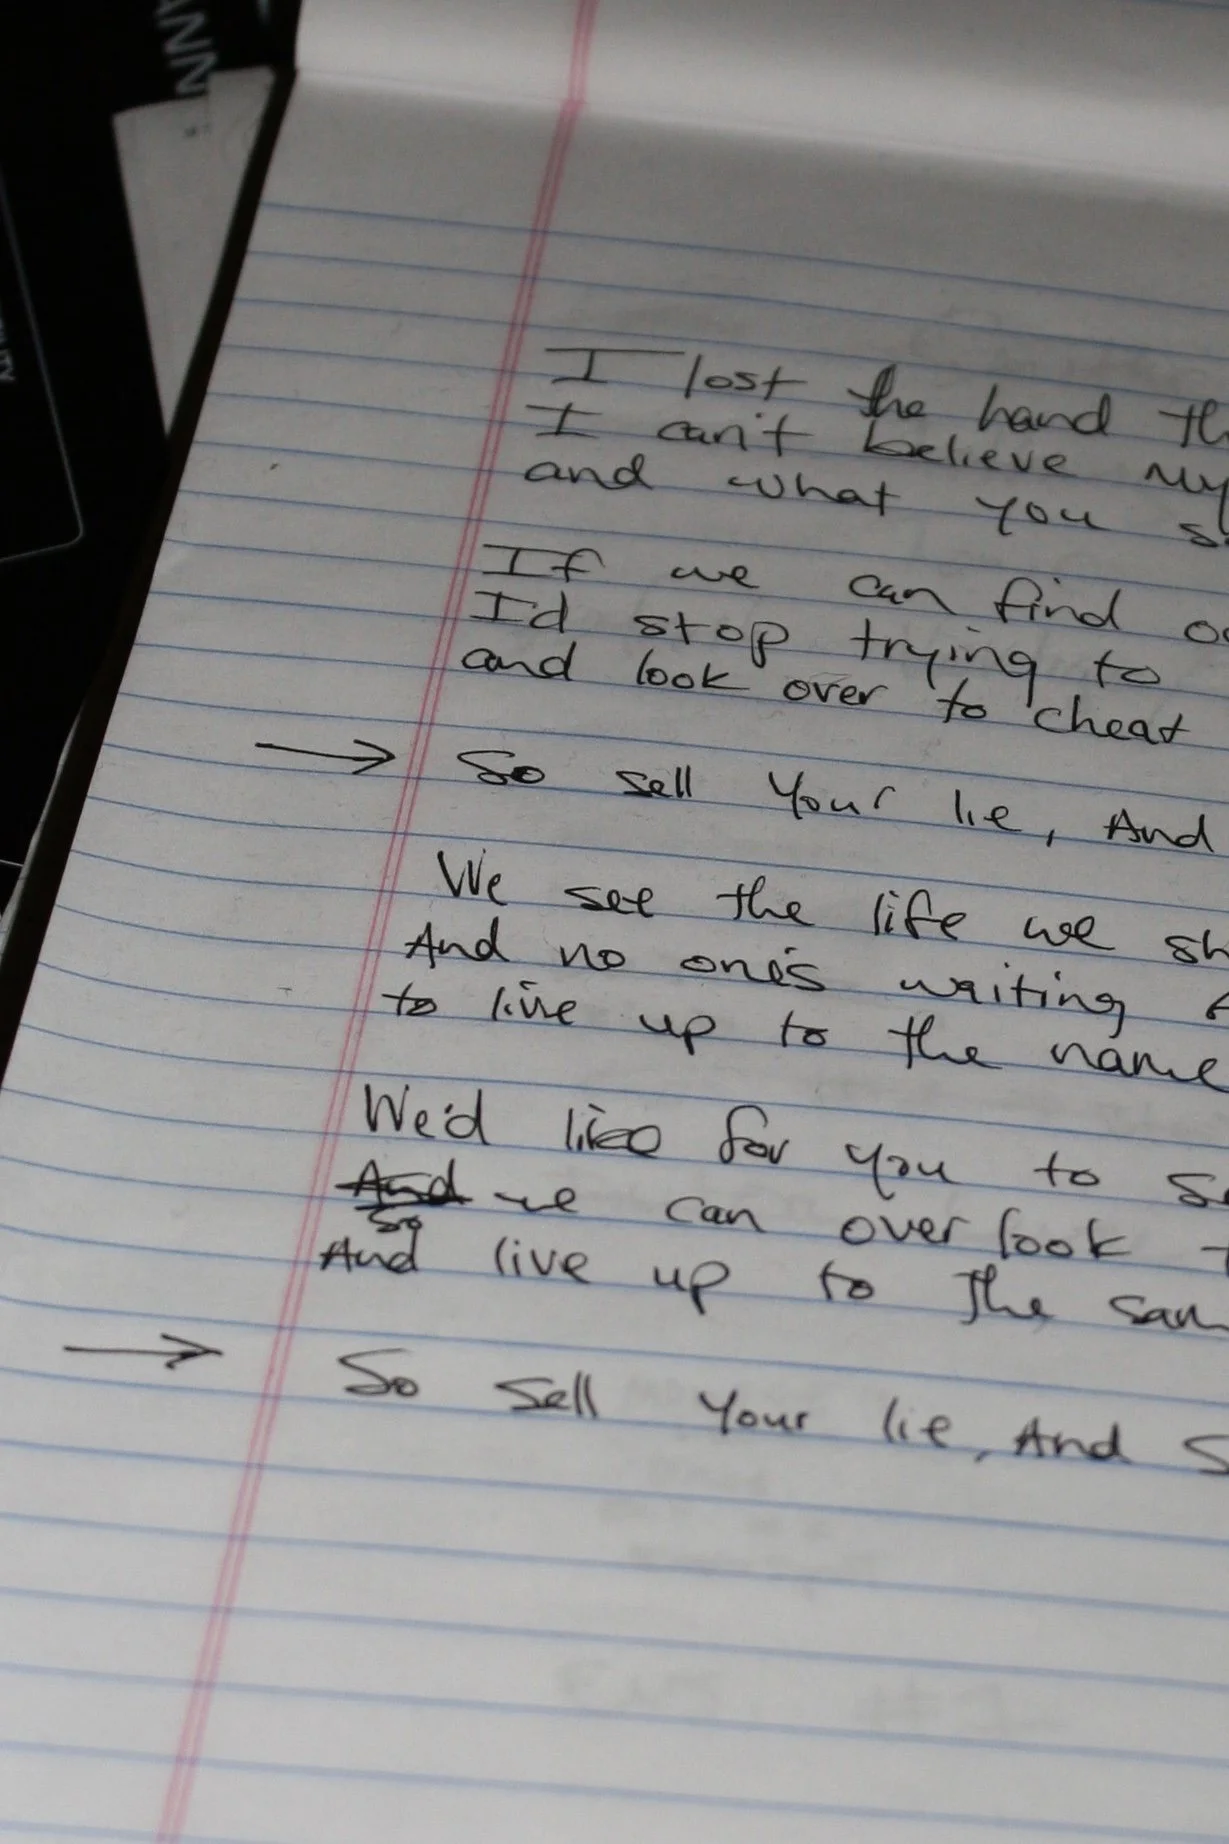 ANN
I lost the hand th
I can't believe my
and what you s
If we can find o
I'd stop trying to
and look over to cheat
→ So sell your lie, And
We see the life we sh
And no one's waiting
to live up to the name
We'd like for you to s
~~And~~ we can over look
so
And live up to the sam
→ So sell your lie, And S